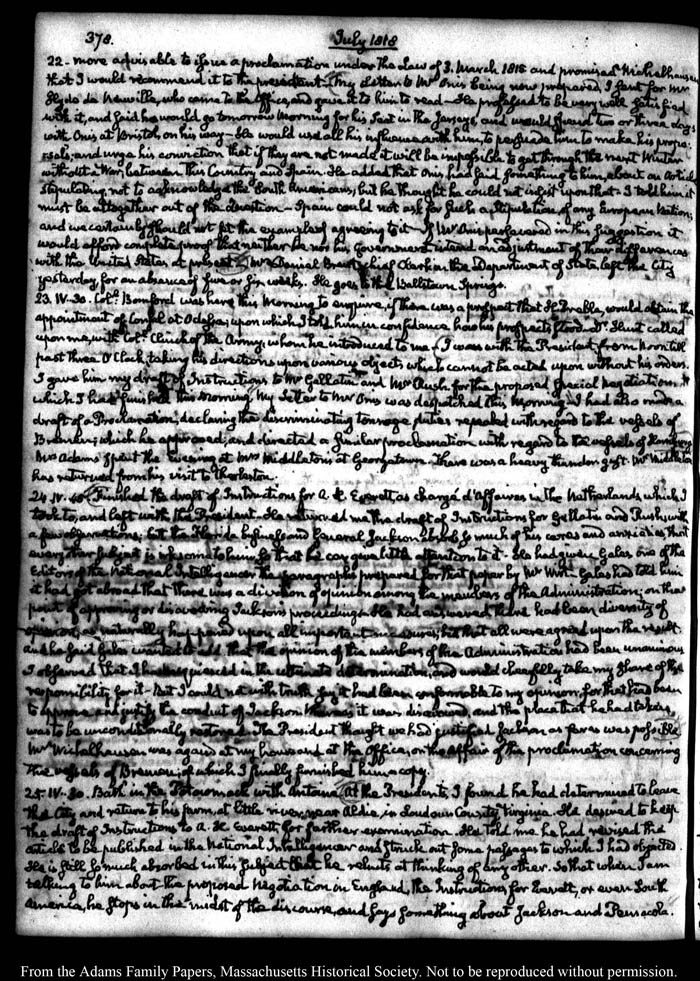 378.
July 1818
22- more advisable to issue a proclamation under the Law of 3. March 1815 and promised Mr Nichelhausen
that I would recommend it to the president- My Letter to Mr Onis being now prepared, I sent for Mr
Hyde de Neuville, who came to the Office, and gave it to him to read- He professed to be very well satisfied
with it, and said he would go tomorrow Morning for his Seat in the Jerseys, and would spend two or three days
with Onis at Bristol, on his way- He would use all his influence with him, to persuade him to make his propo-
sals, and urge his conviction that if they are not made it will be impossible to get through the next Winter
without a War, between this Country and Spain. He added that Onis had said something to him, about an Article
stipulating not to acknowledge the South Americans, but he thought he could not insist upon that- I told him it
must be altogether out of the question- Spain could not ask for such a stipulation, of any European Nation,
and we certainly should not set the example of agreeing to it- If Mr Onis persevered in this suggestion it
would afford complete proof that neither he nor his Government intend an adjustment of those differences
with the United States at present- Mr Daniel Brent, chief Clerk in the Department of State, left the City
yesterday for an absence of five or six weeks. He goes to the Ballstown Springs.
23. IV.30. Coll. Bomford was here this Morning to enquire, if there was a prospect that would obtain the
appointment of Consul at Odessa; upon which I told him in confidence how his prospects stood. Hunt called
upon me, with Coll. Clinch of the Army, whom he introduced to me- I was with the President from Noon till
past three O'Clock, taking his directions upon various objects which cannot be acted upon without his orders.
I gave him my draft of Instructions to Mr Gallatin and Mr Rush, for the proposed special negotiation,
which I had finished this Morning. My Letter to Mr Onis was despatched this Morning- I had also made a
draft of a Proclamation, declaring the discriminating tonnage duties repealed with regard to the vessels of
Bremen; which he approved, and directed a similar proclamation with regard to the vessels of Hamburg
Mrs Adams spent the Evening at Mrs Middleton's at Georgetown. There was a heavy thunder gust. Mr Middleton
has returned from his visit to Charleston.
24. IV.40. Finished the draft of Instructions for A. H. Everett as chargé d'Affaires in the Netherlands, which I
took to, and left with the President. He returned me the draft of Instructions for Gallatin and Rush, with
a few observations; but the Florida business and General Jackson absorb so much of his cares and anxieties that
every other subject is irksome to him, so that he can give little attention to it- He had given Gales one of the
Editors of the National Intelligencer the paragraphs prepared for that paper by Mr Wirt. Gales had told him
it had got abroad that there was a division of opinion among the members of the Administration, on the
point of approving or disavowing Jackson's proceedings- He had answered there had been diversity of
opinion, as naturally happened upon all important measures; but that all were agreed upon the result.
and he said Gales wanted to add that the opinion of the members of the Administration had been unanimous
I observed that I had acquiesced in the ultimate determination, and would cheerfully take my share of the
responsibility for it- But I could not with truth say it had been conformable to my opinion, for that had been
to approve and justify the conduct of Jackson whereas it was disavowed, and the place that he had taken
was to be unconditionally restored. The President thought we had justified Jackson as far as was possible.
Mr Nichelhausen was again at my house and at the Office, on the affair of the proclamation concerning
the vessels of Bremen; of which I finally furnished him a copy.
25. IV.30. Bath in the Potowmack with Antoine. At the President's, I found he had determined to leave
the City and return to his farm, at little river, near Aldie, in Loudoun County, Virginia. He desired to keep
the draft of Instructions to A. H. Everett, for further examination. He told me he had revised the
article to be published in the National Intelligencer and struck out some passages to which I had objected.
He is still so much absorbed in this subject that he relucts at thinking of any other. So that when I am
talking to him about the proposed Negotiation in England, the Instructions for Everett, or even South
America, he stops in the midst of the discourse, and says something about Jackson and Pensacola.
From the Adams Family Papers, Massachusetts Historical Society. Not to be reproduced without permission.